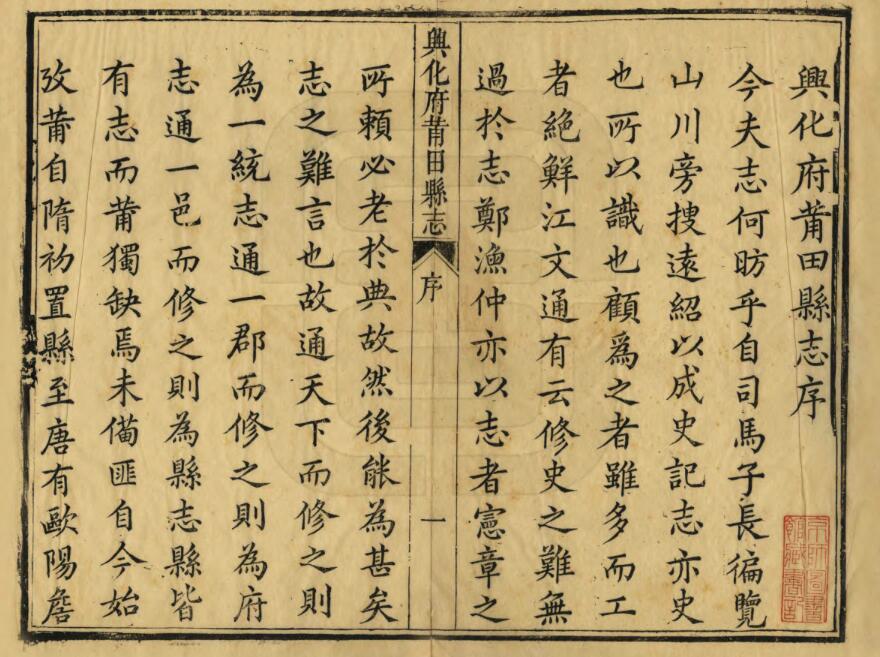 興化府莆田縣志序
今夫志何昉乎自司馬子長徧覽
山川旁搜遠紹以成史記志亦史
也所以識也顧爲之者雖多而工
者絶鮮江文通有云修史之難無
過於志鄭漁仲亦以志者憲章之
興化府莆田縣志
序
一
所頼必老於典故然後能為甚矣
志之難言也故通天下而修之則
為一統志通一郡而修之則為府
志通一邑而修之則為縣志縣皆
有志而莆獨缺焉未備匪自今始
攷莆自隋初置縣至唐有歐陽詹